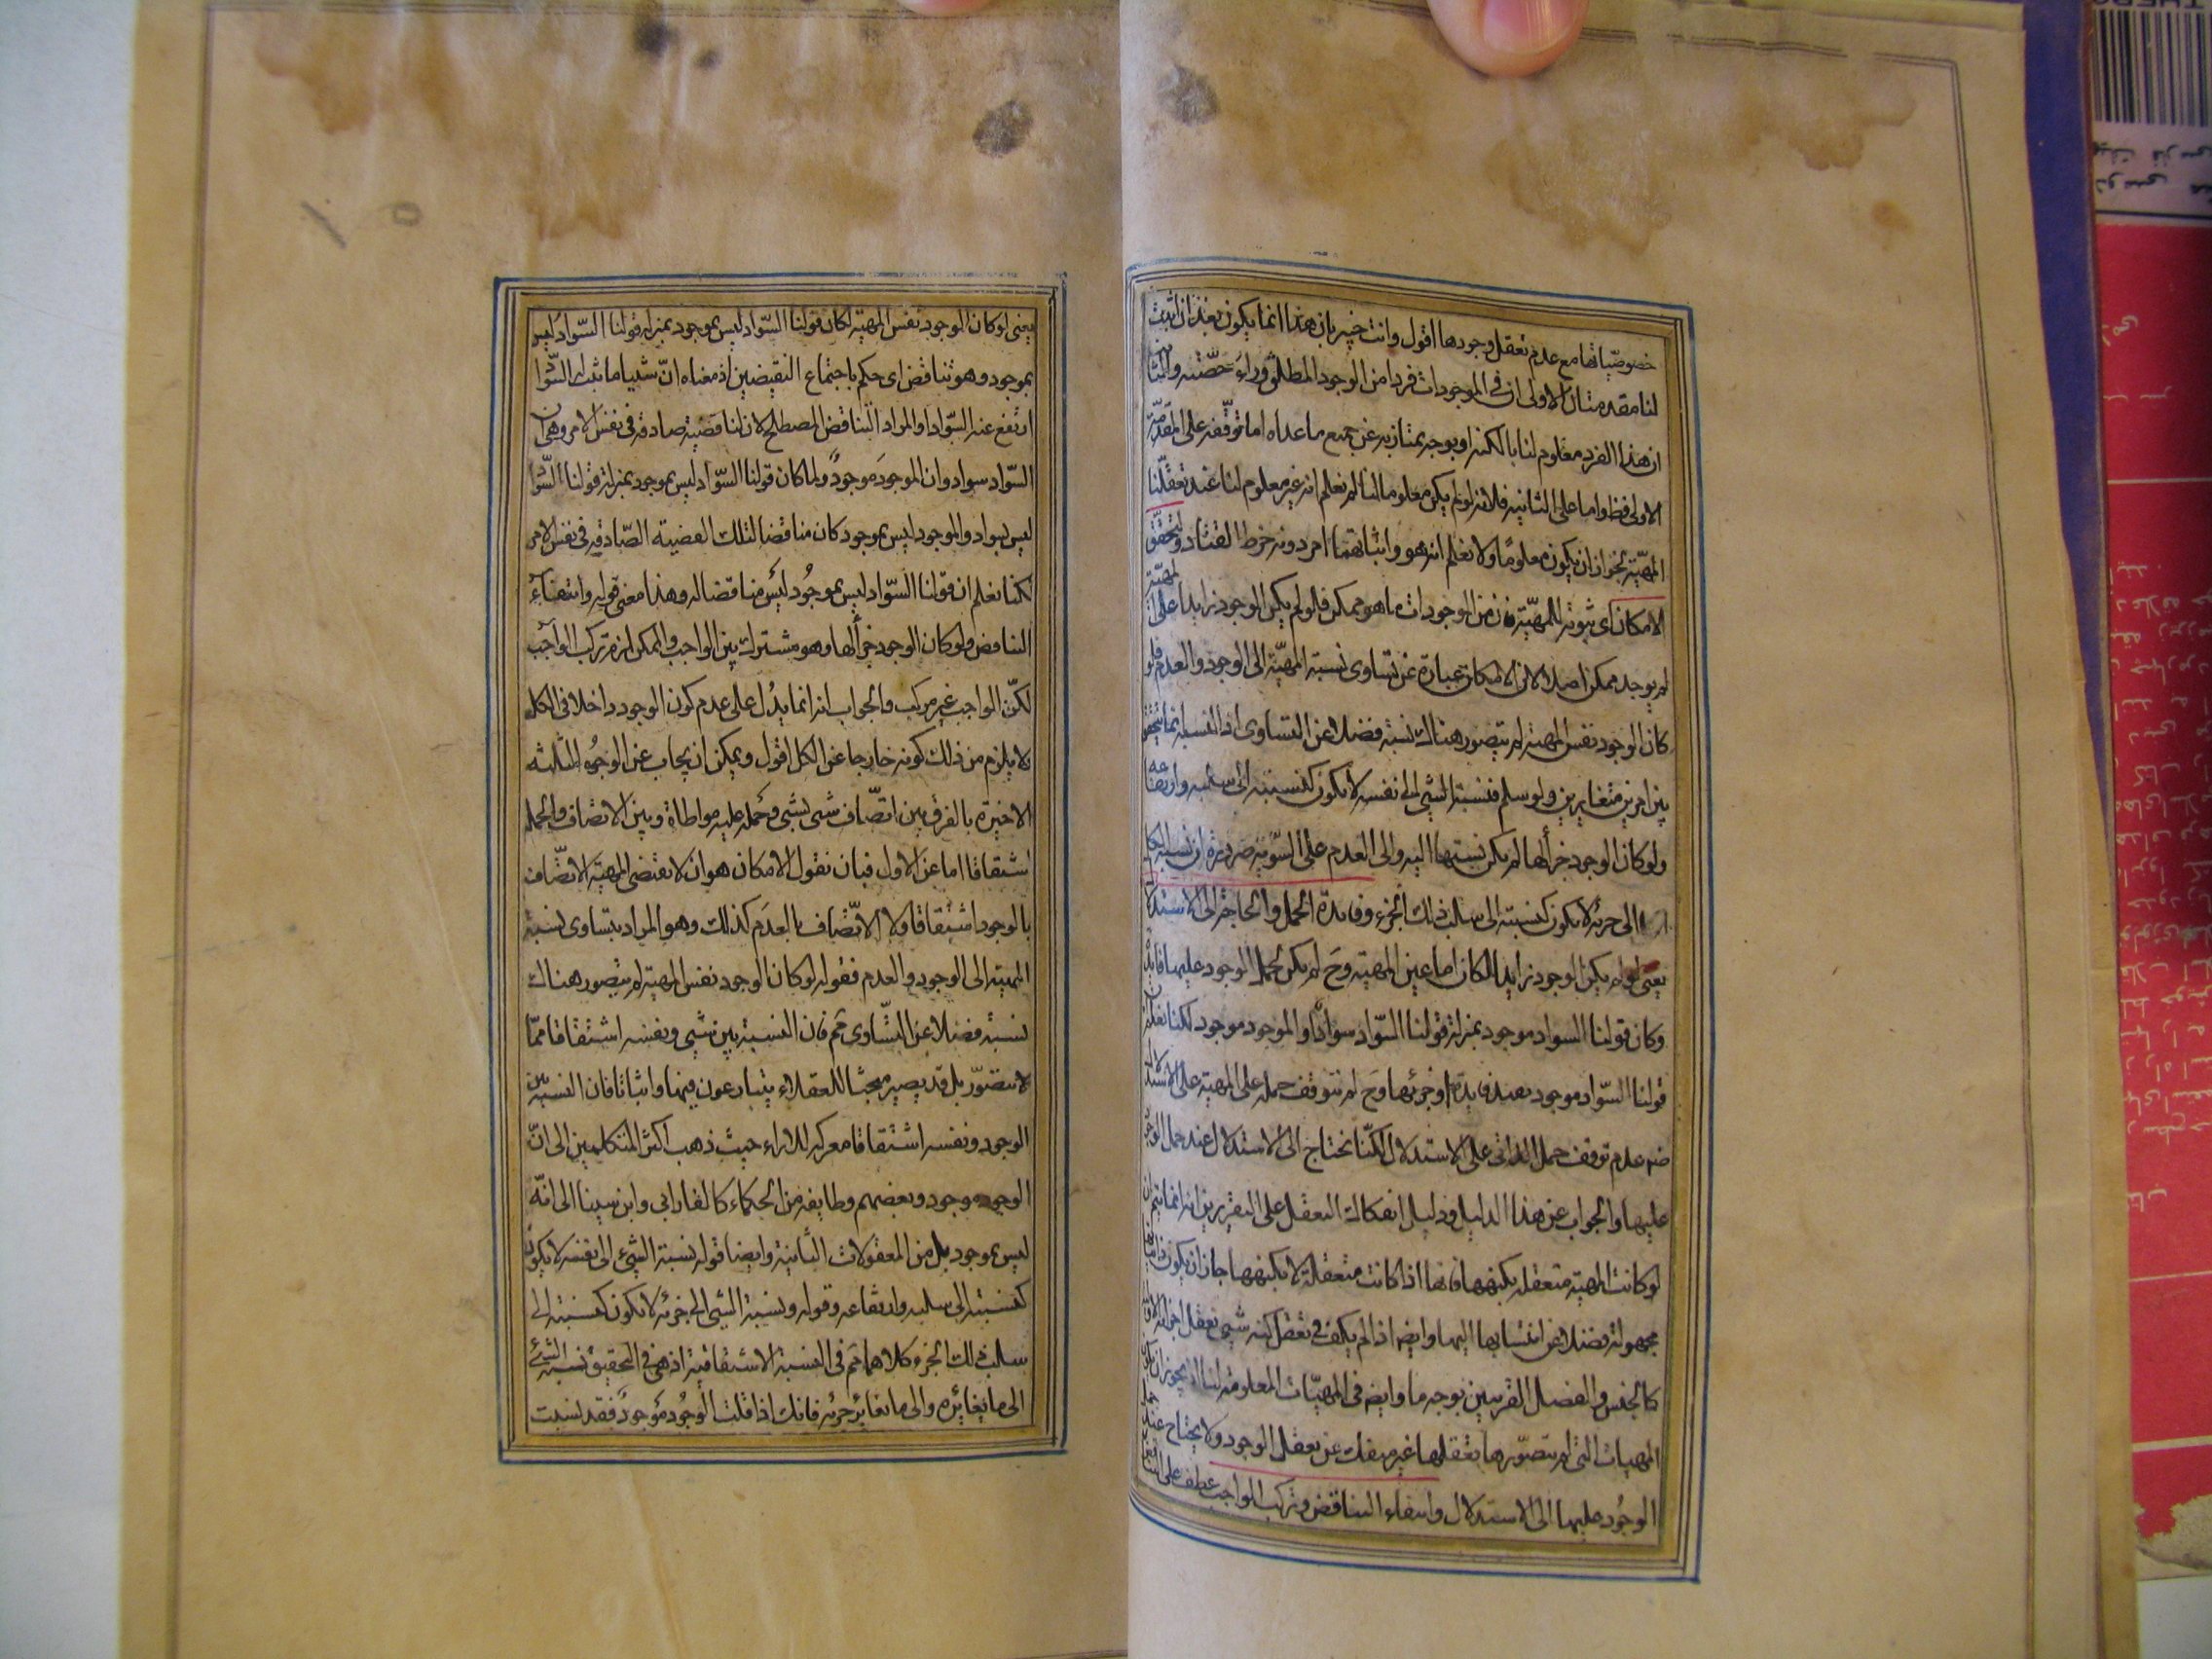 خصوصيّاتها مع عدم تعقل وجودها اقول وانت خبير بان هذا انما يكون بعد ان اثبت
لنا مقدمتان الاولى ان فى الموجودات فردا من الوجود المطلق وراء حصّته والثانية
ان هذا الفرد معلوم لنا بالكنه او بوجه يمتاز به عن جميع ما عداه اما توقّفه على المقدمة
الاولى فظ واما على الثانية فلانه لو لم يكن معلوما لنا لم نعلم انه غير معلوم لنا عند تعقّلنا
المهيّة لجواز ان يكون معلومًا ولا نعلم انه هو واثباتهما امر دونه خرط القتاد ولتحقّق
الامكان اى ثبوته للمهيّة فان من الموجودات ما هو ممكن فلو لم يكن الوجود زايدا على المهيّة
لم يوجد ممكن اصلا لان الامكان عبارة عن تساوى نسبة المهيّة الى الوجود والعدم فلو
كان الوجود نفس المهية لم يتصور هناك نسبة فضلا عن التساوى اذ النسبة انما يتحقق
بين امرين متغايرين ولو سلم فنسبة الشئ الى نفسه لا يكون كنسبته الى سلبه وارتفاعه
ولو كان الوجود جزأ لها لم يكن نسبتها اليه والى العدم على السّوية ضرورة ان نسبة الكل
الى جزئه لا يكون كنسبته الى سلب ذلك الجزء وفايدة الحمل والحاجة الى الاستدلال
يعنى لو لم يكن الوجود زايدا لكان اما عين المهية وح لم يكن لحمل الوجود عليها فايدة
وكان قولنا السواد موجود بمنزلة قولنا السّواد سوادًا والموجود موجود لكنا نعلم ان
قولنا السّواد موجود يفيد فايدة او جزئها وح لم يتوقف حمله على المهية على الاستدلال
ضه عدم توقف حمل الذاتى على الاستدلال لكنّا نحتاج الى الاستدلال عند حمل الوجود
عليها والجواب عن هذا الدليل ودليل انفكاك التعقل على التقريرين انه انما يتم ان
لو كانت المهية متعقلة بكنهها فانها اذا كانت متعقلة لا بكنهها جاز ان يكون ذاتياتها
مجهولة فضلا عن انتسابها اليها وايضا اذا لم يكف فى تعقل كنه شئ تعقل اجزائه الاولية
كالجنس والفصل القريبين بوجه ما وايضا فى المهيّات المعلومة لنا اذ يجوز ان يكون
المهيات التى لم يتصوّرها تعقلها غير منفك عن تعقل الوجود ولا يحتاج عند حمل
الوجود عليها الى الاستدلال وانتفاء التناقض وتركب الواجب عطف على
يعنى لو كان الوجود نفس المهيّة لكان قولنا السّواد ليس بموجود بمنزلة قولنا السّواد ليس
بموجود وهو تناقض اى حكم باجتماع النقيضين اذ معناه انّ شيئا ما ثبت له السّواد
ارتفع عنه السّواد او المراد التناقض المصطلح لان لنا قضية صادقة فى نفس الامر وهى ان
السّواد سواد وان الموجود موجودٌ ولما كان قولنا السّواد ليس بموجود بمنزلة قولنا السّواد
ليس بسواد والموجود ليس بموجود كان مناقضا لتلك القضية الصّادقة فى نفس الامر
لكنا نعلم ان قولنا السّواد ليس بموجُود ليس مناقضا له وهذا معنى قوله وانتفاء
التناقض ولو كان الوجود جزأ لها وهو مشترك بين الواجب والممكن لزم تركب الواجب
لكنّ الواجب غير مركب والجواب انه انما يدُل على عدم كون الوجود داخلا فى الكل
لا يلزم من ذلك كونه خارجا عن الكل اقول ويمكن ان يجاب عن الوجُوه الثلثة
الاخيرة بالفرق بين اتّصاف شئ بشئ وحمله عليه مواطاة وبين الاتصاف والحمل
اشتقاقا اما عن الاول فبان نقول الامكان هو ان لا تقتضى المهية الاتّصاف
بالوجود اشتقاقا ولا الاتّصاف بالعدَم كذلك وهو المراد بتساوى نسبة
المهية الى الوجود والعدم فقوله لو كان الوجود نفس المهية لم يتصور هناك
نسبة فضلا عن التّساوى مم فان النسبة بين شئ ونفسه اشتقاقا ممّا
لا يتصوّر بل قد يصير مبحثا للعقلاء يتنازعون فيها واثباتا فان النسبة بين
الوجود ونفسه اشتقاقا معركة للاراء حيث ذهب اكثر المتكلمين الى انّ
الوجود موجود وبعضهم وطايفة من الحكماء كالفارابى وابن سينا الى انّه
ليس بموجود بل من المعقولات الثانية وايضا قوله نسبة الشئ الى نفسه لا يكون
كنسبته الى سلبه وارتفاعه وقوله ونسبة الشئ الى جزئه لا يكون كنسبته الى
سلب ذلك الجزء كلاهما مم فى النسبة الاشتقاقية اذ هى فى التحقيق نسبة الشئ
الى ما يغايره والى ما يغاير جزئه فانك اذا قلت الوجُود موجودٌ فقد نسبت